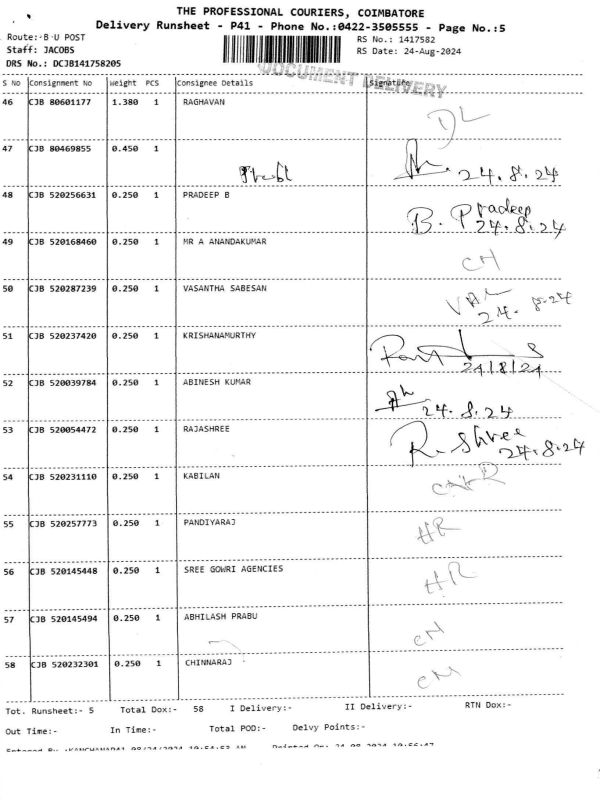 THE PROFESSIONAL COURIERS, COIMBATORE
Delivery Runsheet - P41 - Phone No.:0422-3505555 - Page No.:5
Route:-B-U POST
RS No.: 1417582
Staff: JACOBS
RS Date: 24-Aug-2024
DRS No.: DCJB141758205
DOCUMENT DELIVERY
S No Consignment No Weight PCS Consignee Details Signature
46 CJB 80601177 1.380 1 RAGHAVAN DL
47 CJB 80469855 0.450 1 24.8.24
48 CJB 520256631 0.250 1 PRADEEP B B. Pradeep
24.8.24
49 CJB 520168460 0.250 1 MR A ANANDAKUMAR CH
50 CJB 520287239 0.250 1 VASANTHA SABESAN VAL
24.8.24
51 CJB 520237420 0.250 1 KRISHANAMURTHY
24/8/24
52 CJB 520039784 0.250 1 ABINESH KUMAR
24.8.24
53 CJB 520054472 0.250 1 RAJASHREE R. Shree
24.8.24
54 CJB 520231110 0.250 1 KABILAN
55 CJB 520257773 0.250 1 PANDIYARAJ HR
56 CJB 520145448 0.250 1 SREE GOWRI AGENCIES HR
57 CJB 520145494 0.250 1 ABHILASH PRABU CH
58 CJB 520232301 0.250 1 CHINNARAJ CM
Tot. Runsheet:- 5 Total Dox:- 58 I Delivery:- II Delivery:- RTN Dox:-
Out Time:- In Time:- Total POD:- Delvy Points:-
Entered By :KANCHANAP41 08/24/2024 10:54:53 AM Printed On: 24-08-2024 10:56:47